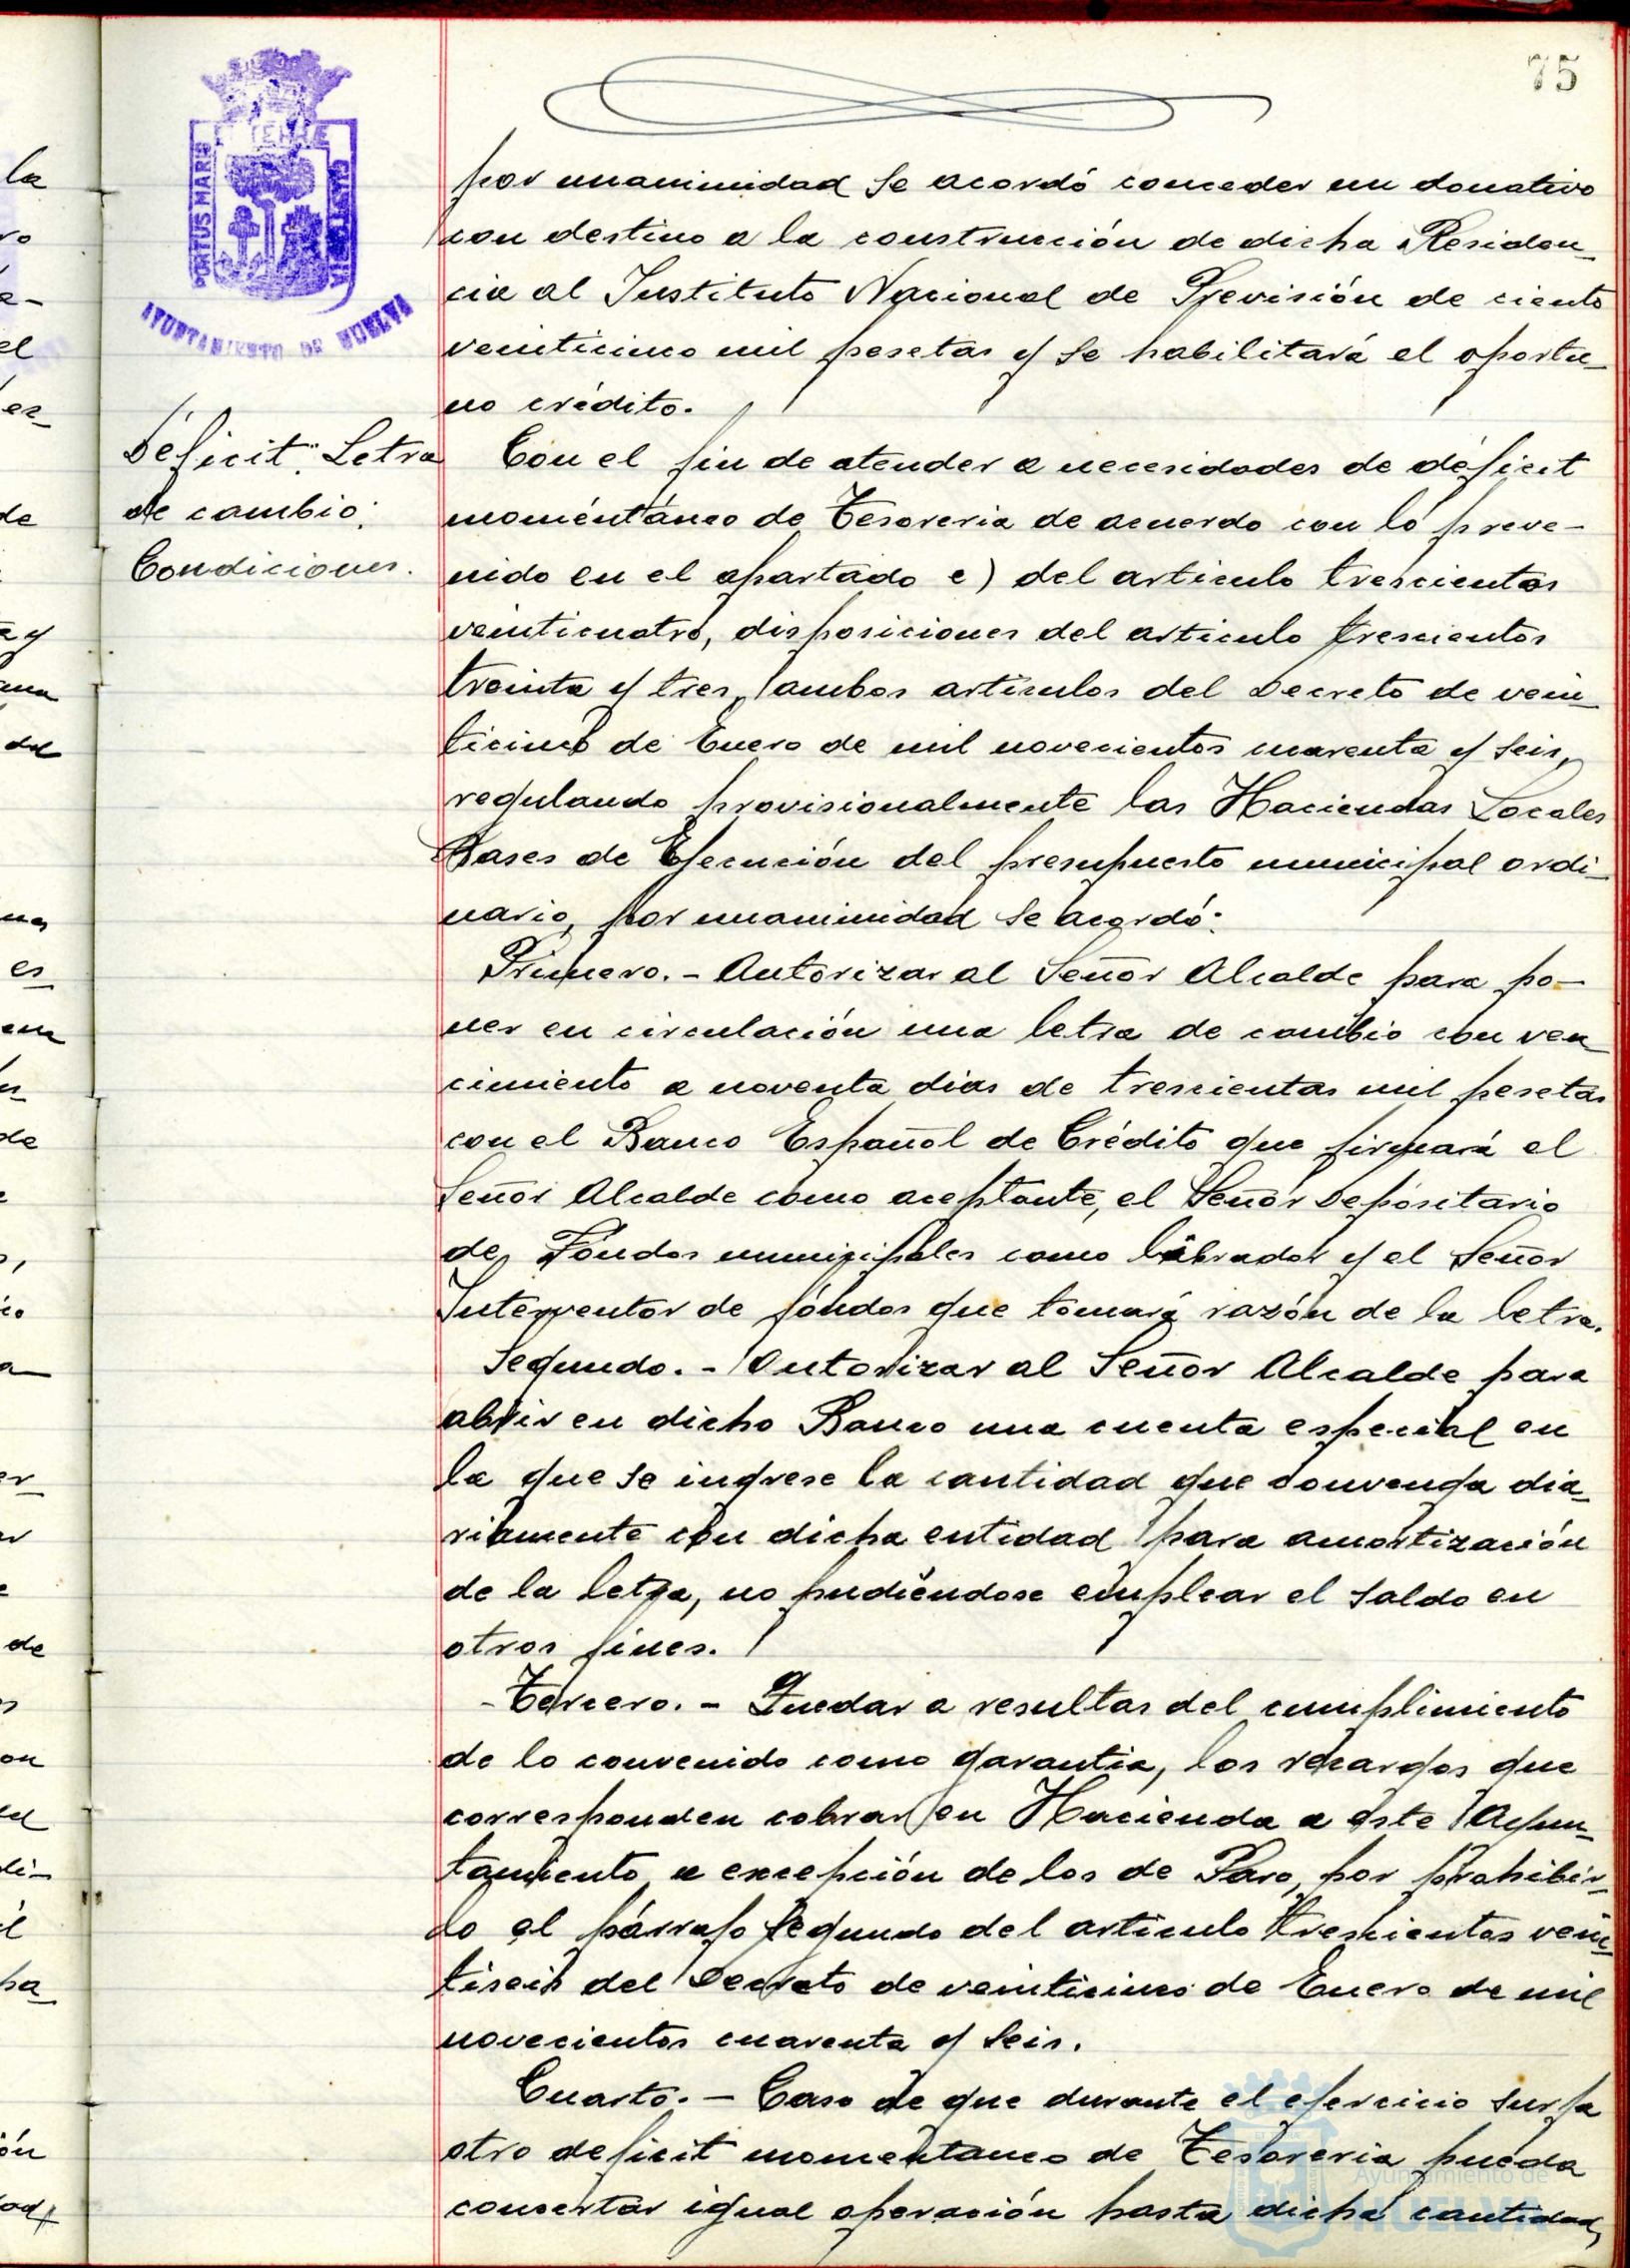 75
PORTUS MARIS
ET TERRE
CUSTODIA
AYUNTAMIENTO DE HUELVA
por unanimidad se acordó conceder un donativo
con destino a la construcción de dicha Residen_
cia al Instituto Nacional de Previsión de ciento
veinticinco mil pesetas y se habilitará el oportu_
no crédito.
Déficit. Letra
de cambio.
Condiciones.
Con el fin de atender a necesidades de déficit
momentáneo de Tesoreria de acuerdo con lo preve-
nido en el apartado e) del articulo trescientos
veinticuatro, disposiciones del articulo trescientos
treinta y tres, ambos artículos del Decreto de vein_
ticinco de Enero de mil novecientos cuarenta y seis,
regulando provisionalmente las Haciendas Locales
Bases de Ejecución del presupuesto municipal ordi_
nario, por unanimidad se acordó:
Primero.- Autorizar al Señor Alcalde para po-
ner en circulación una letra de cambio con ven_
cimiento a noventa dias de trescientas mil pesetas
con el Banco Español de Crédito que firmará el
Señor Alcalde como aceptante, el Señor Depositario
de Fondos municipales como librador y el Señor
Interventor de fondos que tomará razón de la letra.
Segundo.- Autorizar al Señor Alcalde para
abrir en dicho Banco una cuenta especial en
la que se ingrese la cantidad que convenga dia_
riamente con dicha entidad para amortización
de la letra, no pudiéndose emplear el saldo en
otros fines.
-Tercero.- Quedar a resultas del cumplimiento
de lo convenido como garantia, los recargos que
corresponden cobrar en Hacienda a este Ayun_
tamiento a excepción de los de Paro, por prohibir_
lo el párrafo segundo del articulo trescientos vein_
tiseis del Decreto de veinticinco de Enero de mil
novecientos cuarenta y seis.
Cuarto.- Caso de que durante el ejercicio surja
otro deficit momentaneo de Tesoreria pueda
concertar igual operación hasta dicha cantidad,
Ayuntamiento de
HUELVA